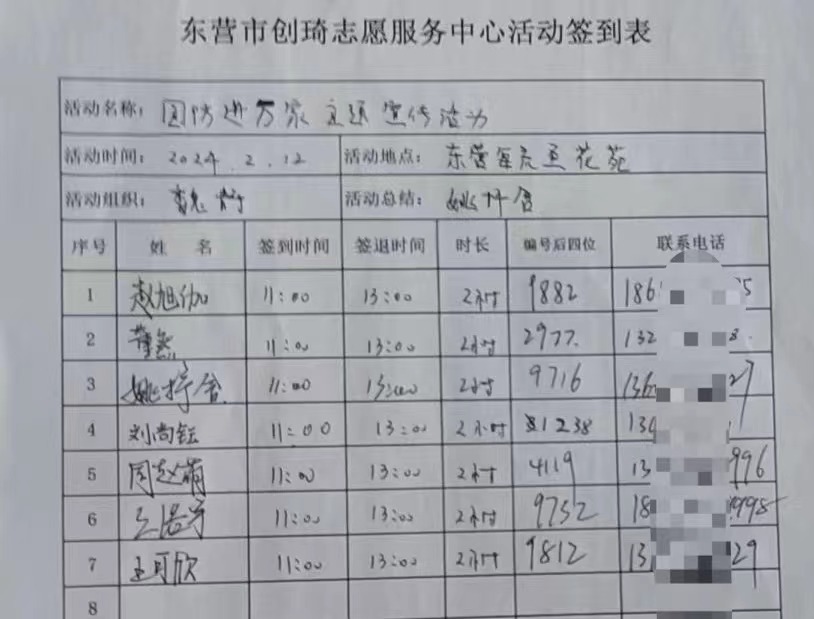 东营市创琦志愿服务中心活动签到表
活动名称: 国防进万家主题宣传活动
活动时间: 2024.2.12 活动地点: 东营花苑
活动组织: 活动总结: 姚
序号 姓 名 签到时间 签退时间 时长 编号后四位 联系电话
1 赵旭伽 11:00 13:00 2小时 9882 186 5
2 董 11:00 13:00 2小时 2977. 132 8.
3 姚 11:00 13:00 2小时 9716 136 27
4 刘尚钰 11:00 13:00 2小时 1238 134
5 周赵萌 11:00 13:00 2小时 4119 13 996
6 王 11:00 13:00 2小时 9752 18 998
7 王可欣 11:00 13:00 2小时 9812 13 29
8